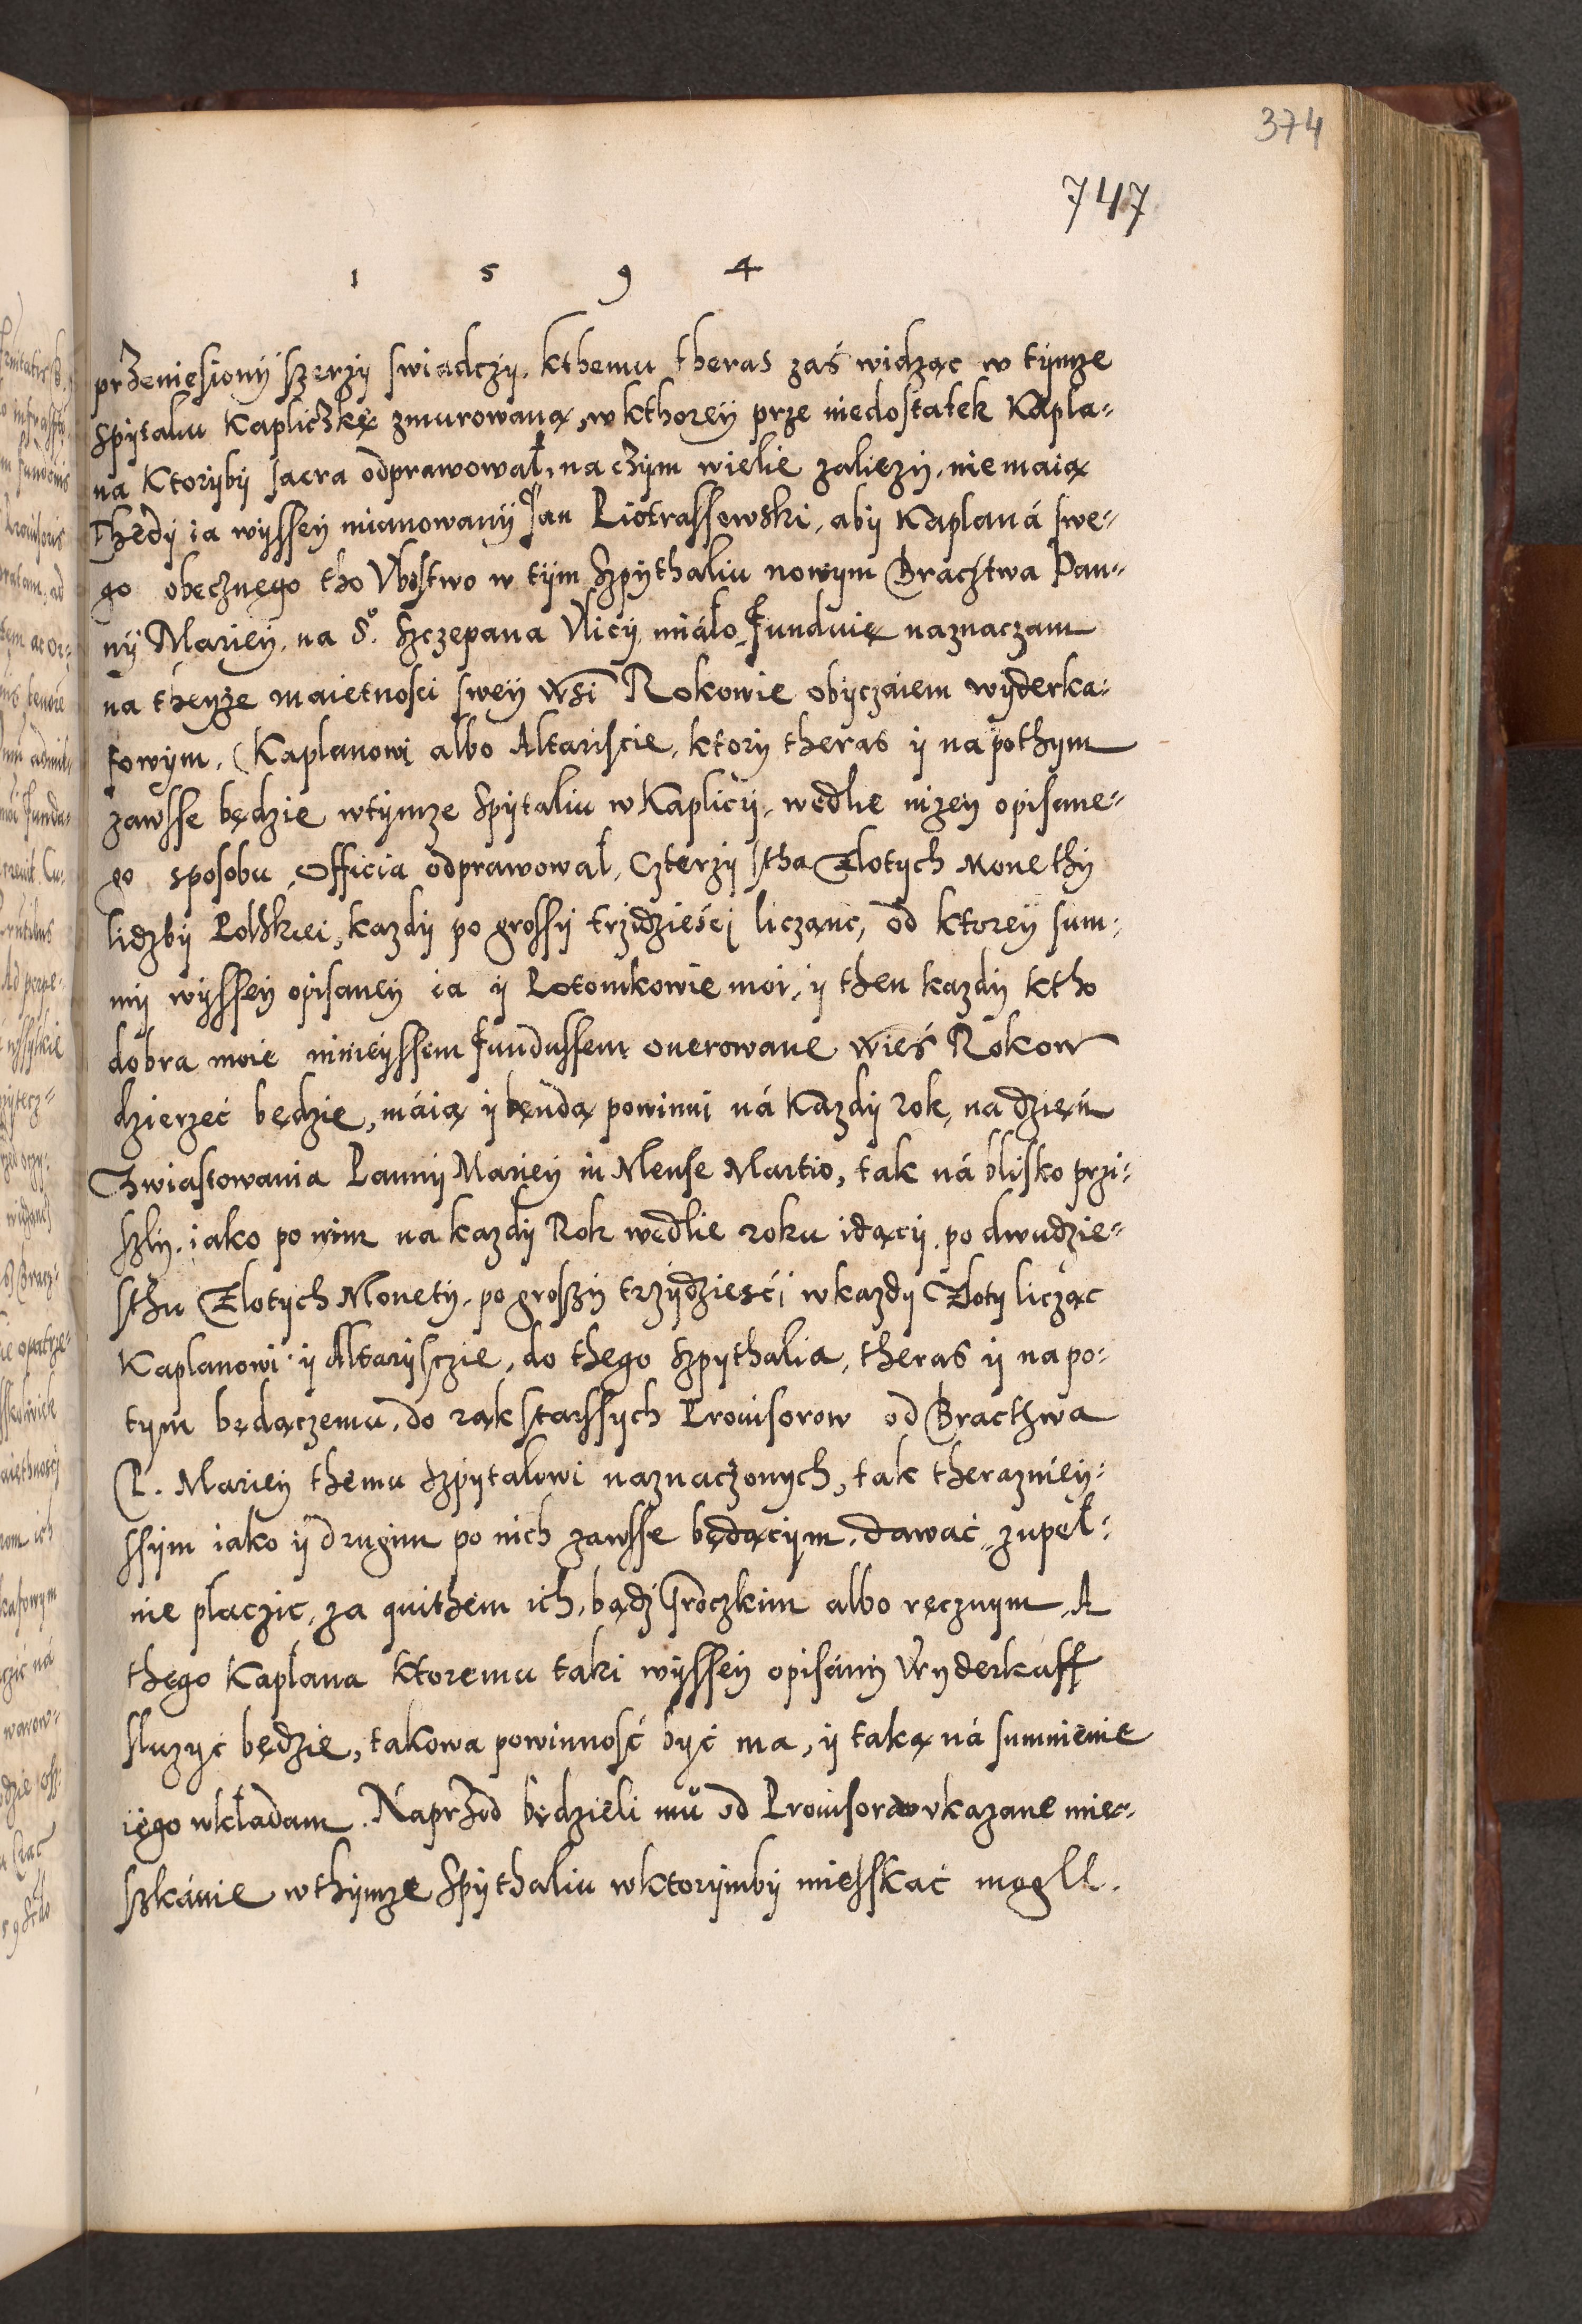 374
747
1 5 9 4
przeniesiony szerzy swiadczy. kthemu theras zaś widząc w tymze
Spytaliu Kapliczkę zmurowaną, w kthorey prze niedostatek Kapla=
na Ktoryby sacra odprawował, na czym wielie zaliezy, nie maią
Thedy ia wyssey mianowany Jan Piotrassewski, aby Kaplaná swe=
go obecznego tho Vbostwo w tym Szpythaliu nowym Bractwa Pan=
ny Mariey, na S°. Szczepana Vlicy miáło, Funduię naznaczam
na theyze maietnosci swey Wsi Rokowie obyczáiem wyderka=
fowym, Kaplanowi albo Altariscie, ktory theras y napothym
zawsse będzie wtymze Spytaliu w Kaplicy, wedlie nizey opisane=
go sposobu, Officia odprawował, Czterzy stha Złotych Monethy
lidzby Polskiei, kazdy po grossy trzidzieści licząnc, od ktorey sum=
my wyssey opisaney ia y Potomkowie moi, y then kazdy ktho
dobra moie ninieyssem Fundussem onerowane wieś Rokow
dzierzeć będzie, máią y bendą powinni ná Kazdy rok, na dzięń
Zwiastowania Panny Mariey in Mense Martio, tak ná blisko przi=
szły, iako po nim na kazdy Rok wedlie roku idący, po dwudzie=
sthu Złotych Monety, po groszy trzydzieści w kazdy Złoty licząc
Kaplanowi y Altaryscie, do thego Szpythalia, theras y napo=
tym będączemu, do rąk starssych Prouisorow od Bracthwa
P. Mariey themu Szpytalowi naznaczonych, tak therazniey=
ssym iako y drugim po nich zawsse będącym, dawać, zupeł=
nie placzic, za quithem ich, bądz Groczkim albo ręcznym. A
thego Kaplana Ktoremu taki wyssey opisány Wyderkaff
sluzyć będzie, takowa powinność być ma, y taką ná sumnienie
iego wkładam. Naprzod będzieli mu od Prouisorow vkazane mie=
szkánie w thymze Spythaliu wktorymby miesskać mogll.